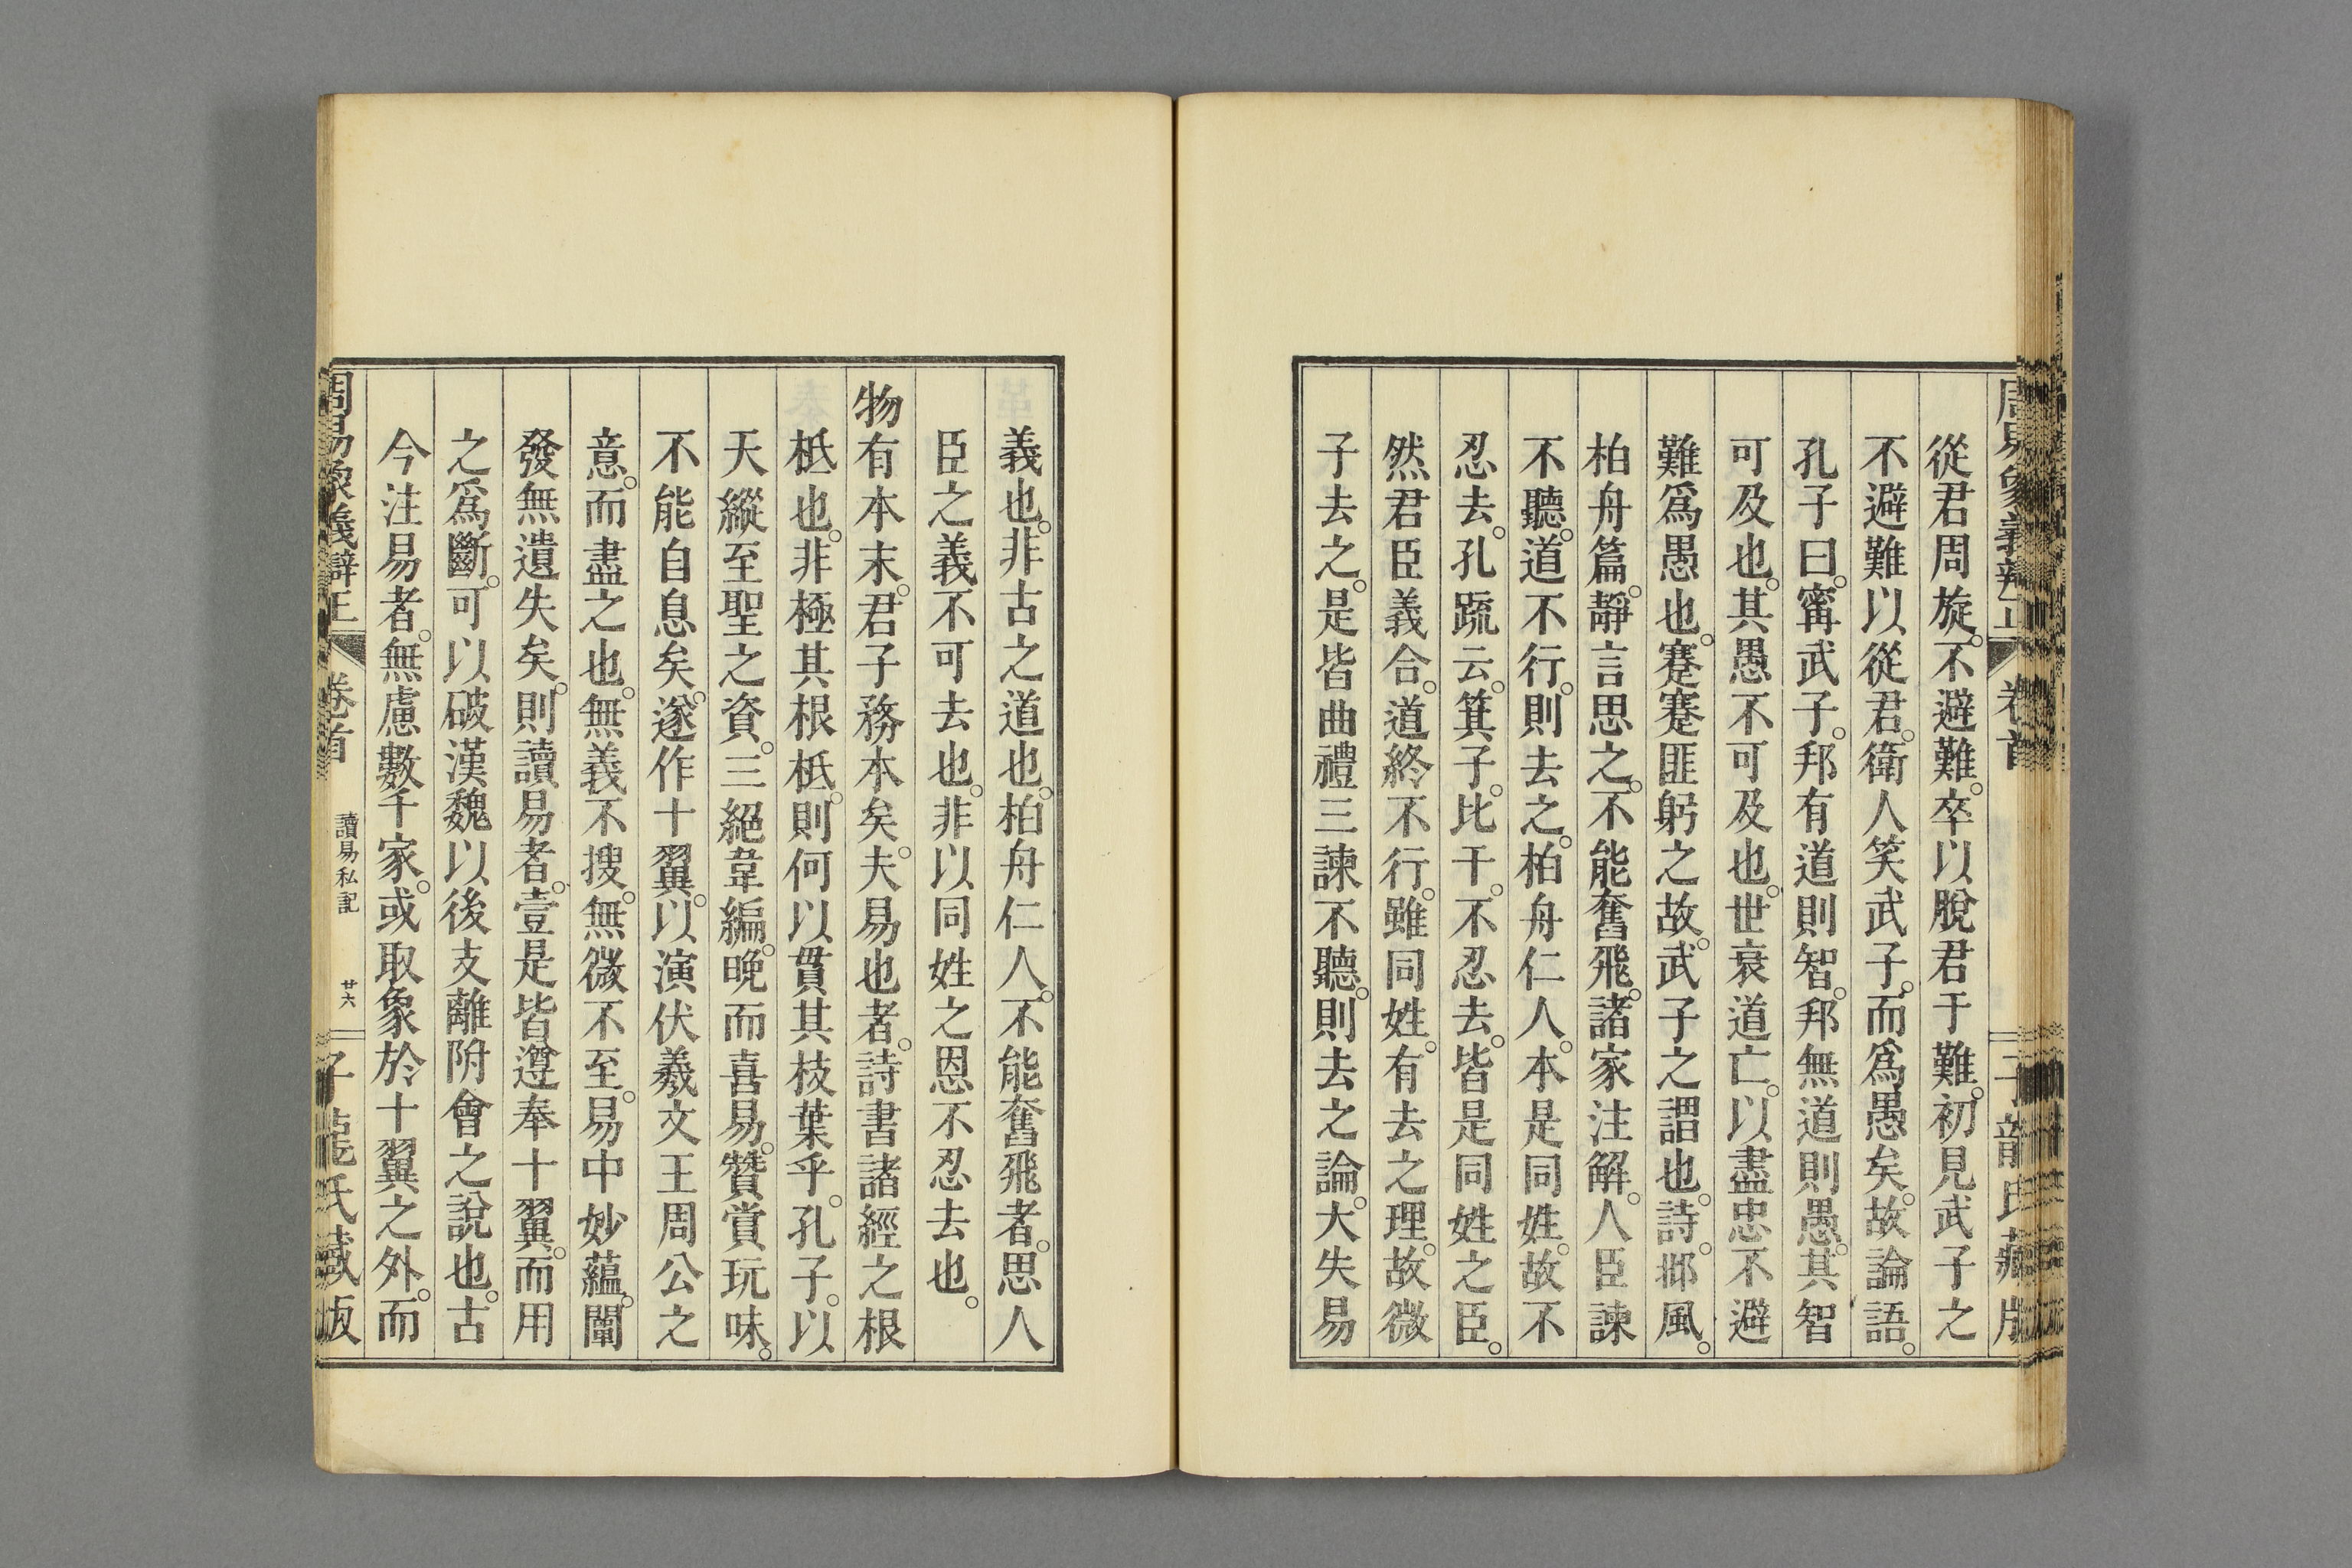 從君周旋。不避難。卒以脫君于難。初見武子之
不避難以從君。衛人笑武子。而爲愚矣。故論語。
孔子曰。甯武子。邦有道則智。邦無道則愚。其智
可及也。其愚不可及也。世衰道亡。以盡忠不避
難爲愚也。蹇蹇匪躬之故。武子之謂也。詩。邶風。
柏舟篇。靜言思之。不能奮飛。諸家注解。人臣諫
不聽。道不行。則去之。柏舟仁人。本是同姓。故不
忍去。孔疏云。箕子。比干。不忍去。皆是同姓之臣。
然君臣義合。道終不行。雖同姓。有去之理。故微
子去之。是皆曲禮三諫不聽。則去之論。大失易
義也。非古之道也。柏舟仁人。不能奮飛者。思人
臣之義不可去也。非以同姓之恩不忍去也。
物有本末。君子務本矣。夫易也者。詩書諸經之根
柢也。非極其根柢。則何以貫其枝葉乎。孔子。以
天縱至聖之資。三絕韋編。晚而喜易。贊賞玩味。
不能自息矣。遂作十翼。以演伏羲文王周公之
意。而盡之也。無義不搜。無微不至。易中妙蘊。闡
發無遺失矣。則讀易者。壹是皆遵奉十翼。而用
之爲斷。可以破漢魏以後支離附會之說也。古
今注易者。無慮數千家。或取象於十翼之外。而
周易象義辯正 卷首 讀易私記 廿六 子龍氏藏版